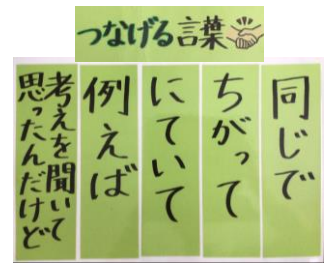 つなげる言葉
同じで
ちがって
にていて
例えば
考えを聞いて
思ったんだけど